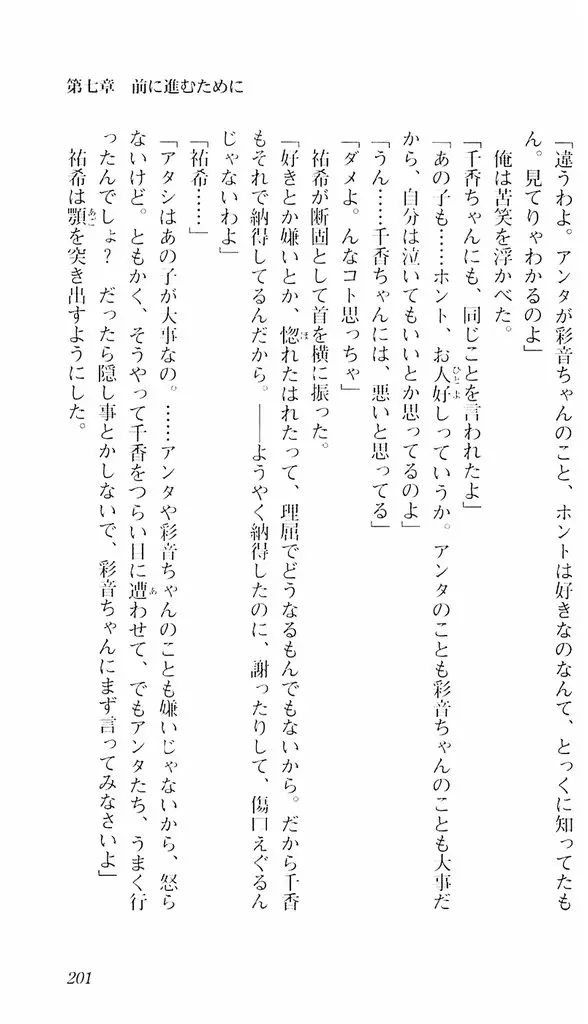 第七章　前に進むために
「違うわよ。アンタが彩音ちゃんのこと、ホントは好きなのなんて、とっくに知ってたも
ん。見てりゃわかるのよ」
俺は苦笑を浮かべた。
「千香ちゃんにも、同じことを言われたよ」
「あの子も……ホント、お人好しっていうか。アンタのことも彩音ちゃんのことも大事だ
から、自分は泣いてもいいとか思ってるのよ」
「うん……千香ちゃんには、悪いと思ってる」
「ダメよ。んなコト思っちゃ」
祐希が断固として首を横に振った。
「好きとか嫌いとか、惚れたはれたって、理屈でどうなるもんでもないから。だから千香
もそれで納得してるんだから。――ようやく納得したのに、謝ったりして、傷口えぐるん
じゃないわよ」
「祐希……」
「アタシはあの子が大事なの。……アンタや彩音ちゃんのことも嫌いじゃないから、怒ら
ないけど。ともかく、そうやって千香をつらい目に遭わせて、でもアンタたち、うまく行
ったんでしょ？　だったら隠し事とかしないで、彩音ちゃんにまず言ってみなさいよ」
祐希は顎を突き出すようにした。
201